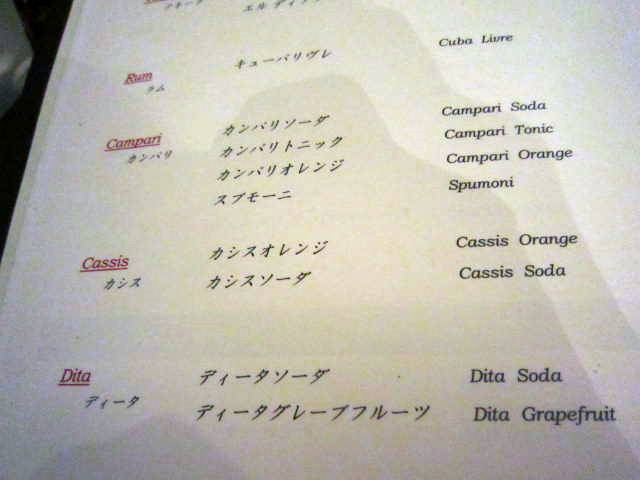 キューバリヴレ Cuba Livre
Rum
ラム
カンパリソーダ Campari Soda
Campari カンパリトニック Campari Tonic
カンパリ カンパリオレンジ Campari Orange
スプモーニ Spumoni
カシスオレンジ Cassis Orange
Cassis カシスソーダ Cassis Soda
カシス
Dita ディータソーダ Dita Soda
ディータ ディータグレープフルーツ Dita Grapefruit